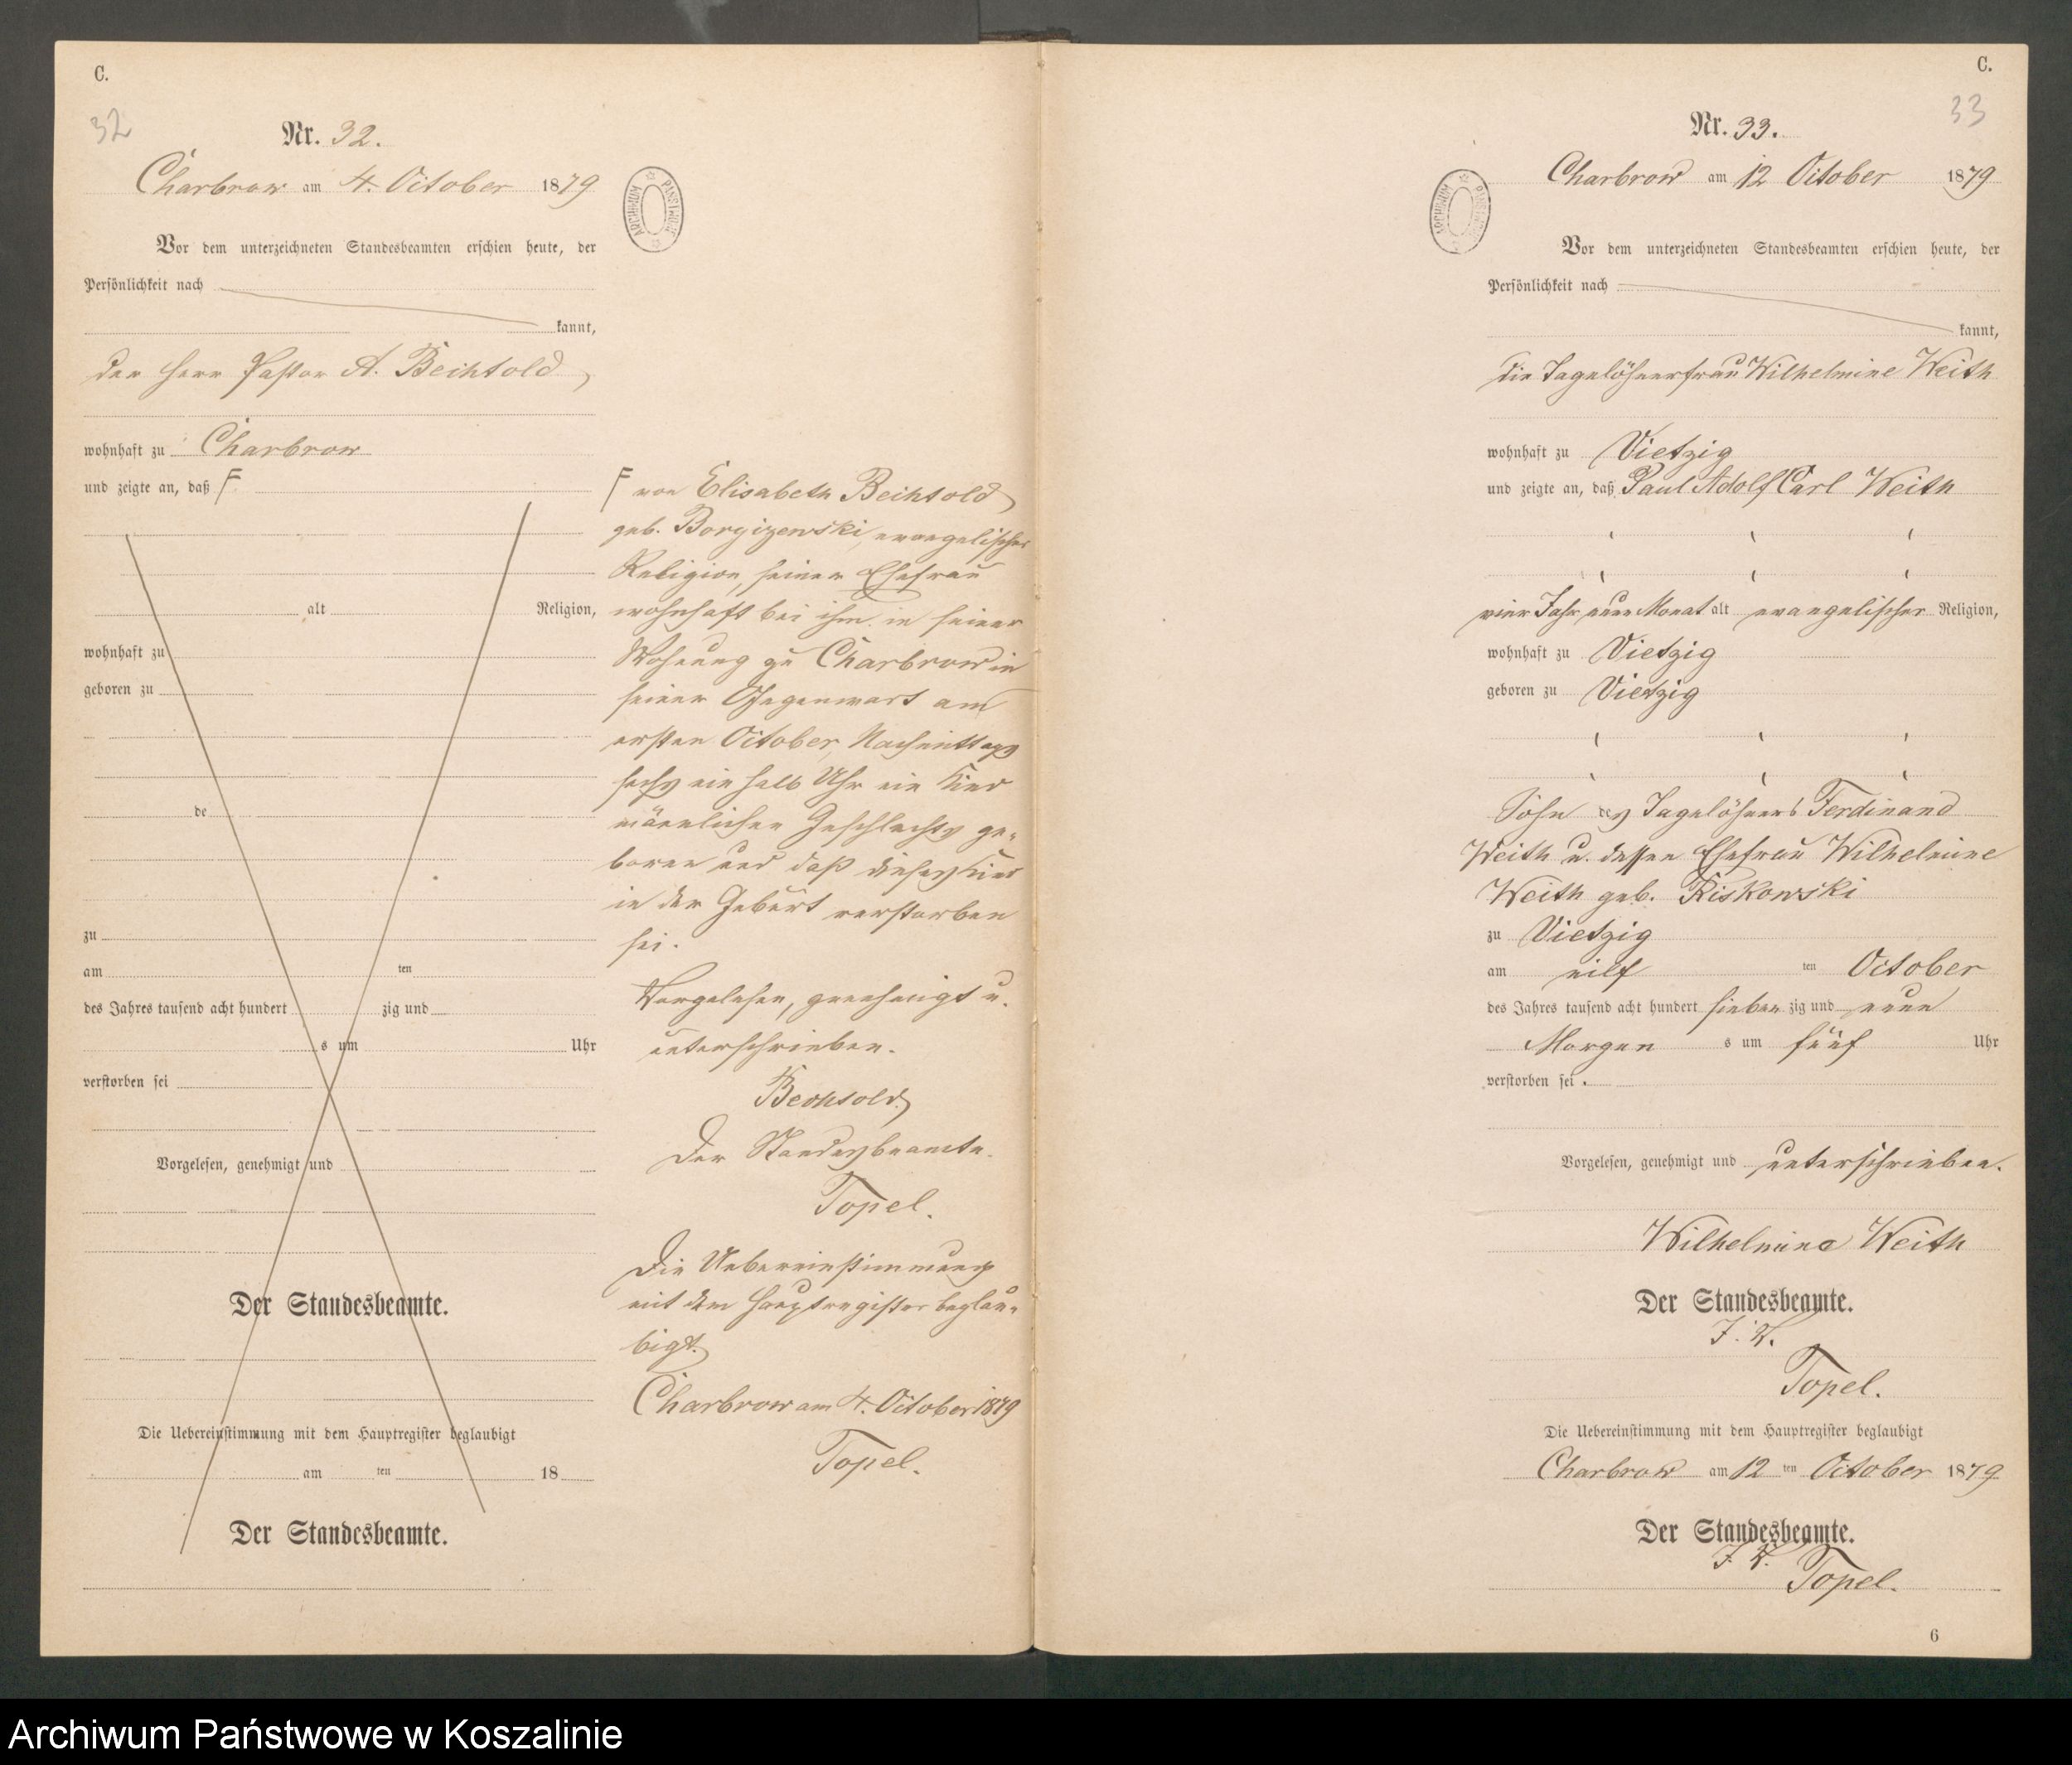 C.
32
Nr. 32.
Charbrow am 4. October 1879
Vor dem unterzeichneten Standesbeamten erschien heute, der
Persönlichkeit nach
kannt,
der Herr Pastor A. Bechtold,
wohnhaft zu Charbrow
und zeigte an, daß F
alt Religion,
wohnhaft zu
geboren zu
de
zu
am ten
des Jahres tausend acht hundert zig und
s um Uhr
verstorben sei
Vorgelesen, genehmigt und
Der Standesbeamte.
Die Uebereinstimmung mit dem Hauptregister beglaubigt
am ten 18
Der Standesbeamte.
ARCHIWUM PAŃSTWOWE
F von Elisabeth Bechtold
geb. evangelischer
Religion, seiner Ehefrau
wohnhaft bei ihm in seiner
Wohnung zu Charbrow in
seiner Gegenwart am
ersten October, Nachmittags
sechs ein halb Uhr ein Kind
männlichen Geschlechts ge-
boren und daß dieses Kind
in der Geburt verstorben
sei.
Vorgelesen, genehmigt u.
unterschrieben.
Bechtold
Der Standesbeamte.
Topel.
Die Uebereinstimmung
mit dem Hauptregister beglau-
bigt.
Charbrow am 4. October 1879
Topel.
C.
33
Nr. 33.
ARCHIWUM PAŃSTWOWE
Charbrow am 12 October 1879
Vor dem unterzeichneten Standesbeamten erschien heute, der
Persönlichkeit nach
kannt,
die Tagelöhnerfrau Wilhelmine Weith
wohnhaft zu Vietzig
und zeigte an, daß Paul Adolf Carl Weith
vier Jahr, neun Monat alt evangelischer Religion,
wohnhaft zu Vietzig
geboren zu Vietzig
Sohn des Tagelöhners Ferdinand
Weith u. dessen Ehefrau Wilhelmine
Weith geb. Kiskowski
zu Vietzig
am eilf ten October
des Jahres tausend acht hundert sieben zig und neun
Morgen s um fünf Uhr
verstorben sei.
Vorgelesen, genehmigt und unterschrieben.
Wilhelmine Weith
Der Standesbeamte.
J. V.
Topel.
Die Uebereinstimmung mit dem Hauptregister beglaubigt
Charbrow am 12 ten October 1879
Der Standesbeamte.
J. V. Topel.
6
Archiwum Państwowe w Koszalinie